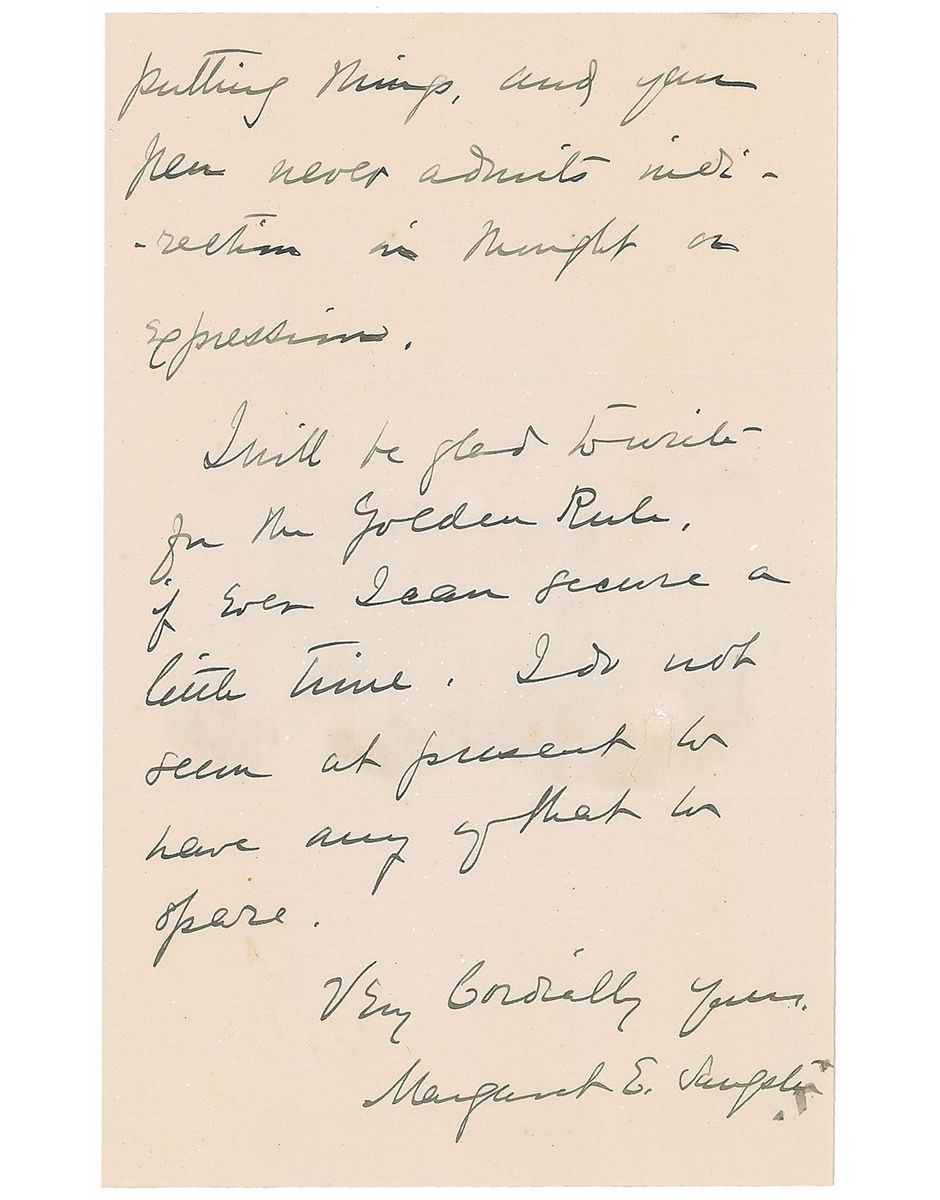 putting things, and your
pen never admits indi-
-rection in thought or
expression.
I will be glad to write
for the Golden Rule,
if ever I can secure a
little time. I do not
seem at present to
have any of that to
spare.
Very Cordially yours,
Margaret E. Sangster